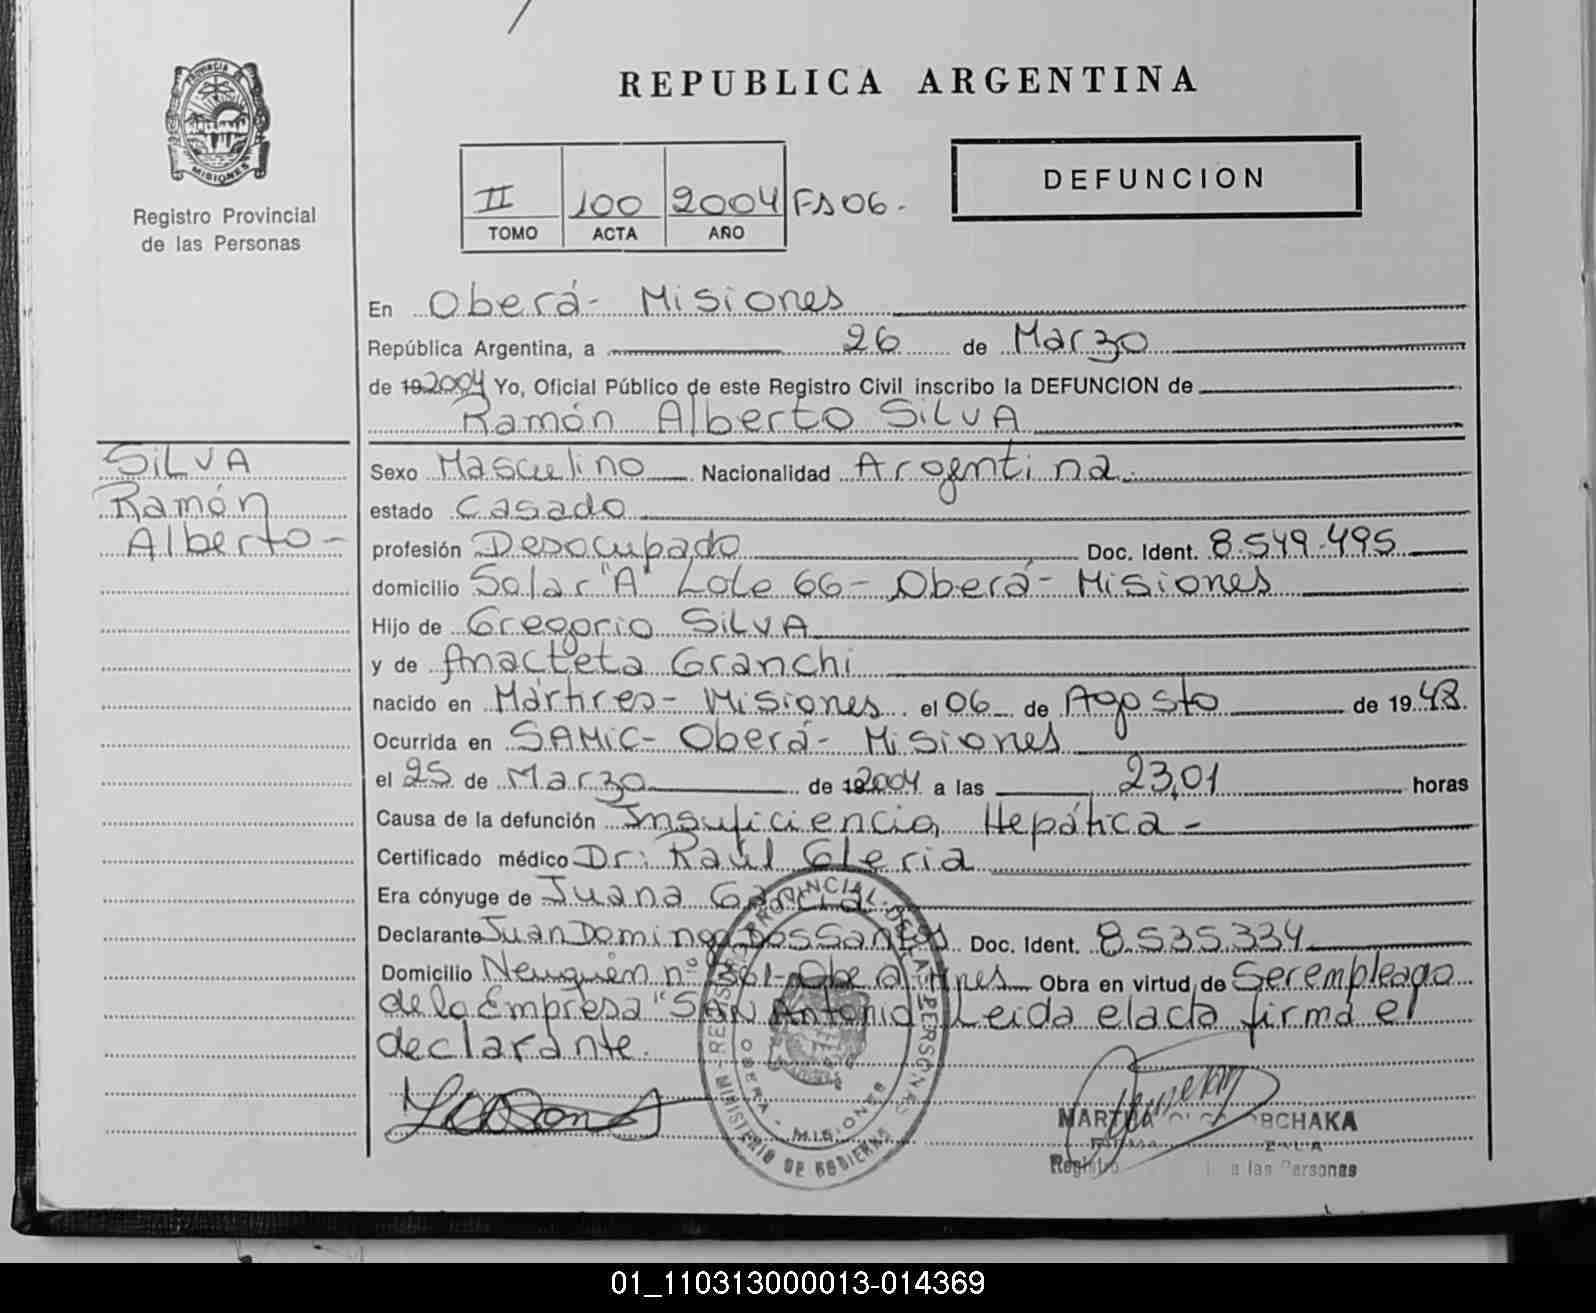 REPUBLICA ARGENTINA
PROVINCIA DE
MISIONES
Registro Provincial
de las Personas
II 100 2004 Fs 06-
TOMO ACTA AÑO
DEFUNCION
En Oberá- Misiones
República Argentina, a 26 de Marzo
de 19 2004 Yo, Oficial Público de este Registro Civil inscribo la DEFUNCION de
Ramón Alberto SILVA
SILVA
Ramón
Alberto-
Sexo Masculino Nacionalidad Argentina
estado Casado
profesión Desocupado Doc. Ident. 8.549.495
domicilio Solar "A" Lote 66- Oberá- Misiones
Hijo de Gregorio SILVA
y de Anacleta Granchi
nacido en Mártires- Misiones el 06 de Agosto de 19 48.
Ocurrida en SAMIC- Oberá- Misiones
el 25 de Marzo de 19 2004 a las 23,01 horas
Causa de la defunción Insuficiencia Hepática-
Certificado médico Dr: Raúl Gleria
Era cónyuge de Juana García
Declarante Juan Domingo Dos Santos Doc. Ident. 8.535.334
Domicilio Neuquén nº 361- Oberá Mnes Obra en virtud de Ser empleado
de la Empresa "SAN Antonio" Leida el acta firma el
declarante.
REGISTRO PROVINCIAL DE LAS PERSONAS
OBERA - MISIONES
MINISTERIO DE GOBIERNO
MARTHA
Registro las Personas
01_110313000013-014369